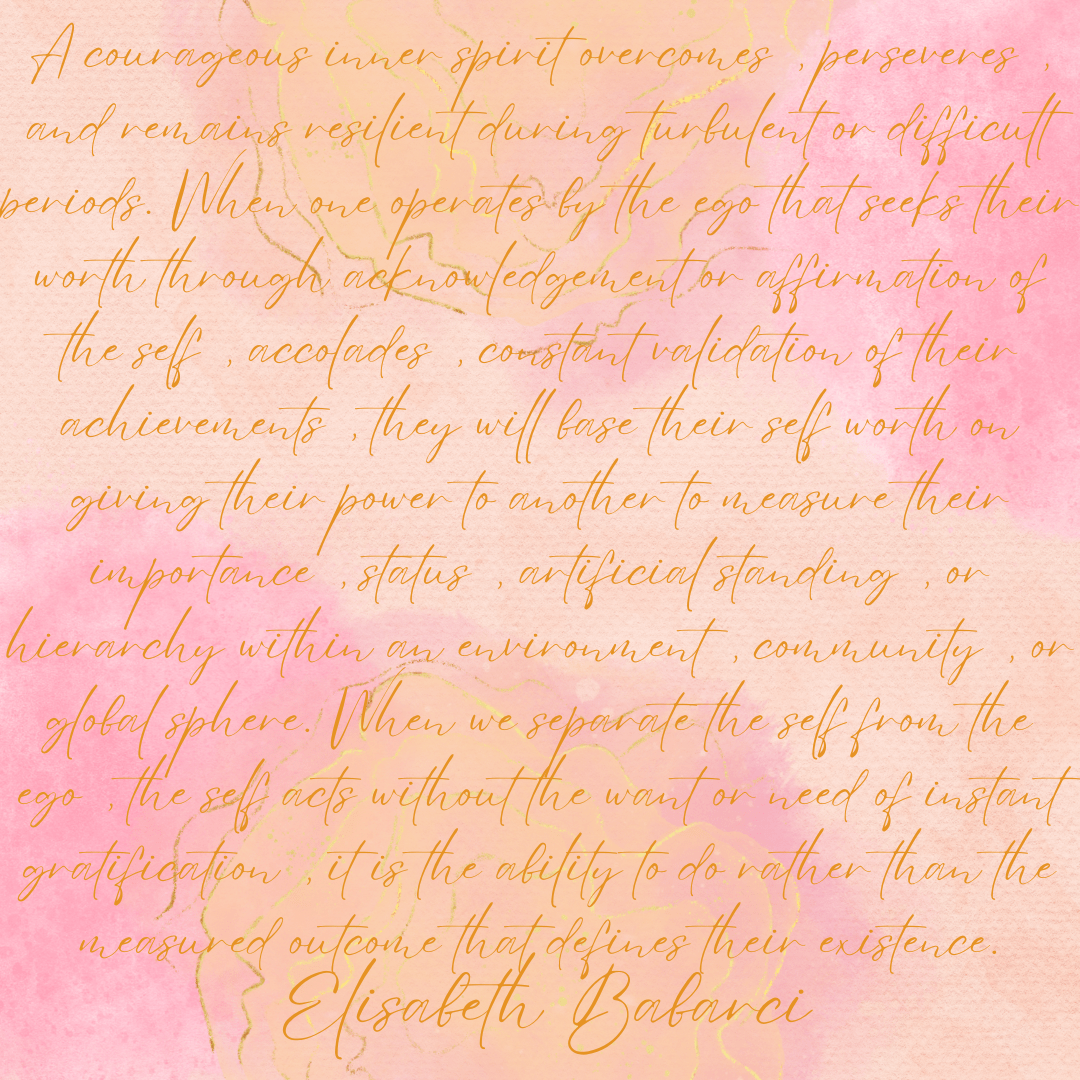 A courageous inner spirit overcomes , perseveres ,
and remains resilient during turbulent or difficult
periods. When one operates by the ego that seeks their
worth through acknowledgement or affirmation of
the self , accolades , constant validation of their
achievements , they will base their self worth on
giving their power to another to measure their
importance , status , artificial standing , or
hierarchy within an environment , community , or
global sphere. When we separate the self from the
ego , the self acts without the want or need of instant
gratification , it is the ability to do rather than the
measured outcome that defines their existence.
Elisabeth Babarci